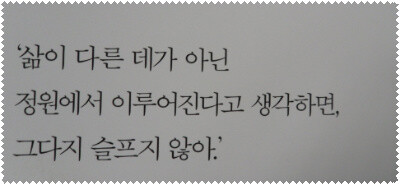 ‘삶이 다른 데가 아닌
정원에서 이루어진다고 생각하면,
그다지 슬프지 않아.’